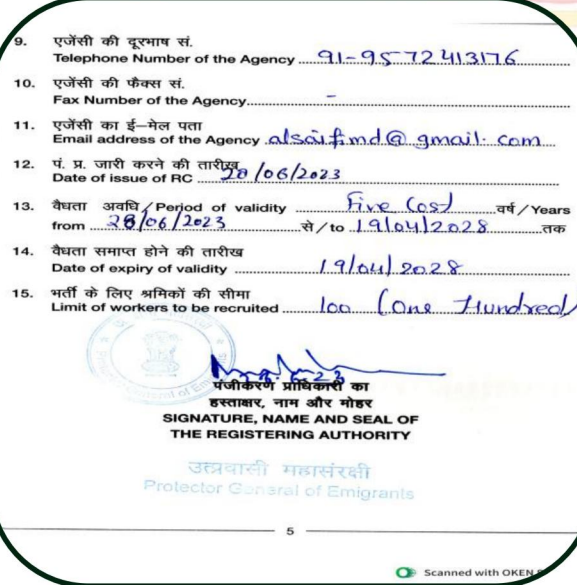 9. एजेंसी की दूरभाष सं.
Telephone Number of the Agency 91-9572413176
10. एजेंसी की फैक्स सं.
Fax Number of the Agency -
11. एजेंसी का ई-मेल पता
Email address of the Agency alsaifmd@gmail.com
12. पं. प्र. जारी करने की तारीख
Date of issue of RC 28/06/2023
13. वैधता अवधि/Period of validity Five (05) वर्ष/Years
from 28/06/2023 से/to 19/04/2028 तक
14. वैधता समाप्त होने की तारीख
Date of expiry of validity 19/04/2028
15. भर्ती के लिए श्रमिकों की सीमा
Limit of workers to be recruited 100 (One Hundred)
पंजीकरण प्राधिकारी का
हस्ताक्षर, नाम और मोहर
SIGNATURE, NAME AND SEAL OF
THE REGISTERING AUTHORITY
उत्प्रवासी महासंरक्षी
Protector General of Emigrants
5
Scanned with OKEN